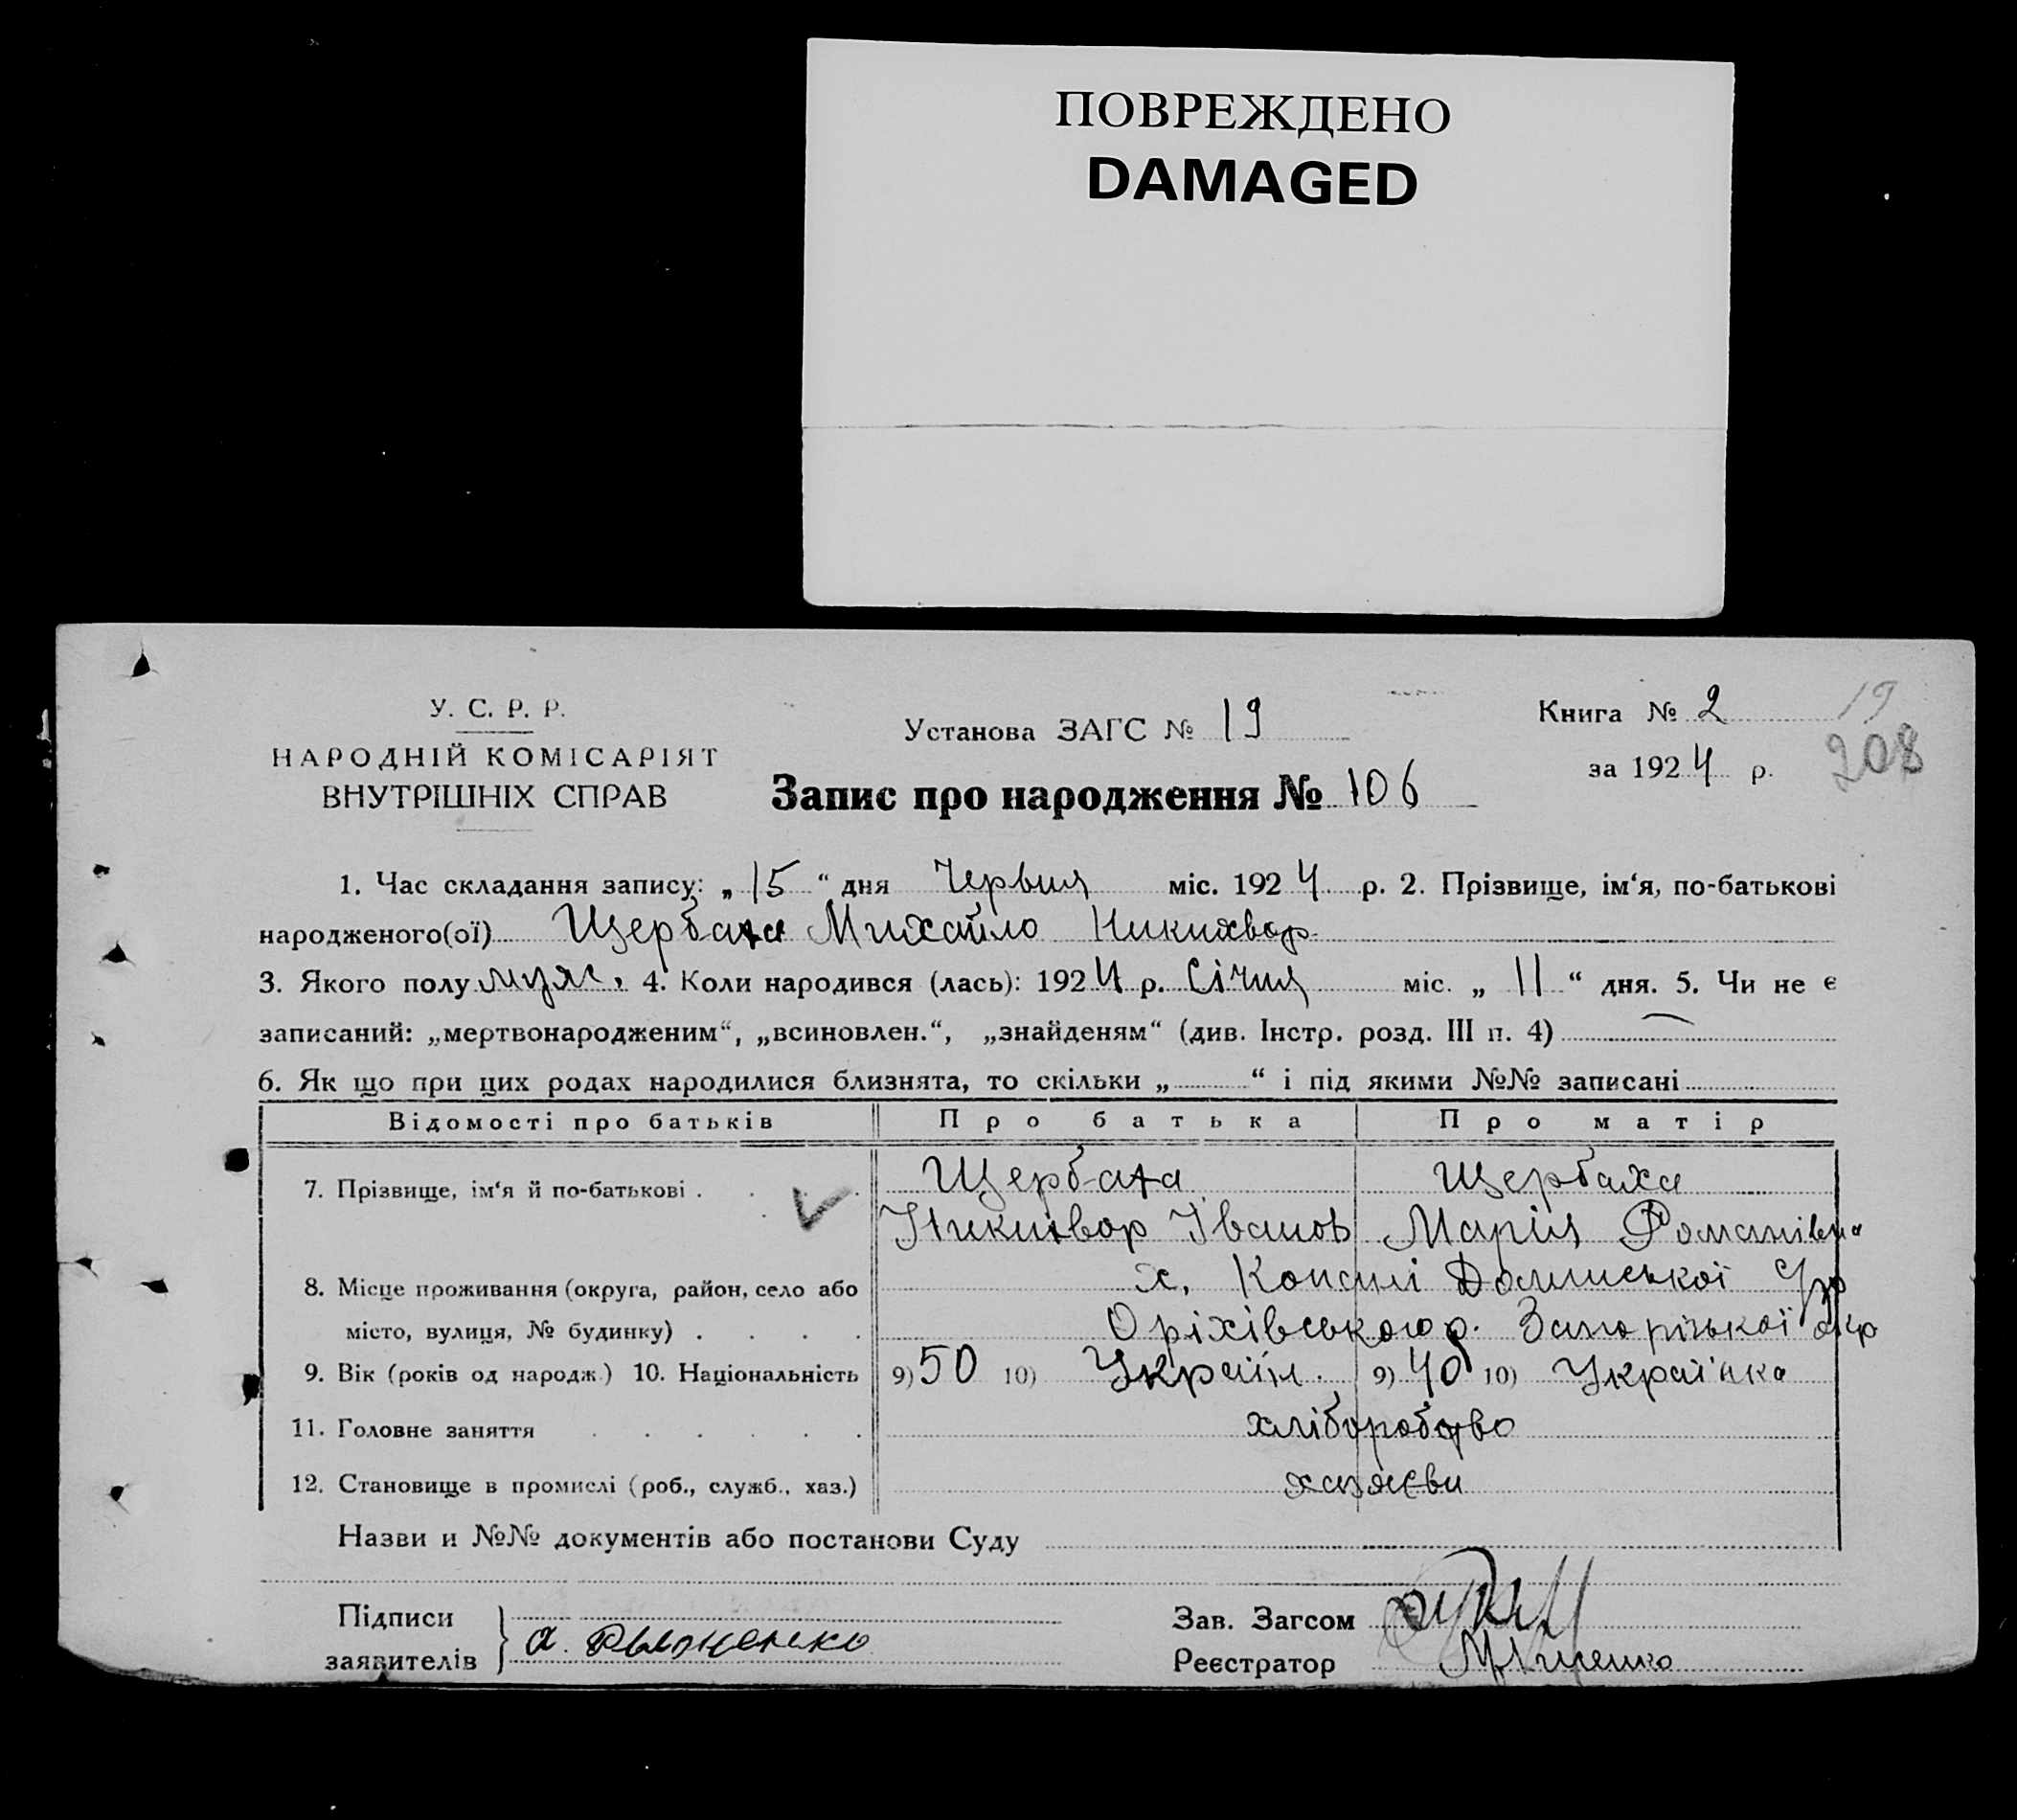 ПОВРЕЖДЕНО
DAMAGED
У. С. Р. Р.
НАРОДНІЙ КОМІСАРІЯТ
ВНУТРІШНІХ СПРАВ
Установа ЗАГС № 19
Запис про народження № 106
Книга № 2
за 1924 р.
19
208
1. Час складання запису: „15“ дня Червня міс. 1924 р. 2. Прізвище, ім‘я, по-батькові
народженого(ої) Щербаха Михайло Никихвор
3. Якого полу муж. 4. Коли народився (лась): 1924 р. Січня міс. „11“ дня. 5. Чи не є
записаний: „мертвонародженим“, „всиновлен.“, „знайденям“ (див. Інстр. розд. III п. 4)
6. Як що при цих родах народилися близнята, то скільки „ “ і під якими №№ записані
Відомості про батьків Про батька Про матір
7. Прізвище, ім‘я й по-батькові Щербаха Щербаха
Никихвор Іванов Марія Романівна
8. Місце проживання (округа, район, село або х. Копані Долинської
місто, вулиця, № будинку) Оріхівського р. Запорізької окр
9. Вік (років од народж.) 10. Національність 9) 50 10) Україн. 9) 40 10) Українка
11. Головне заняття хліборобство
12. Становище в промислі (роб., служб., хаз.) хазяєви
Назви и №№ документів або постанови Суду
Підписи
заявителів
Зав. Загсом
Реєстратор